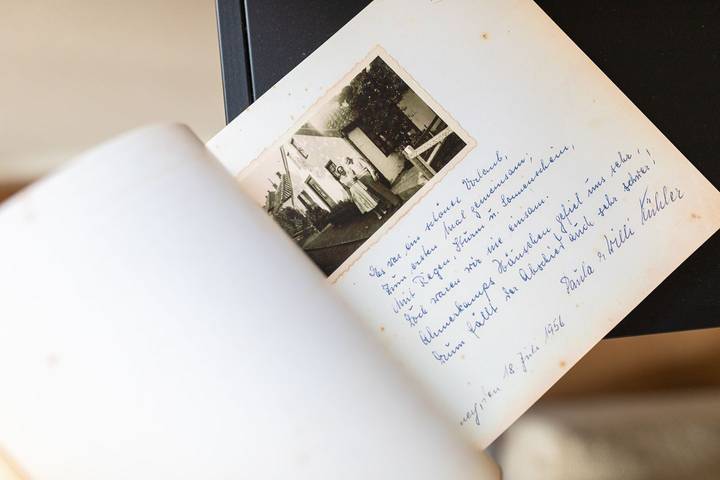 Es war ein schöner Urlaub,
Zum ersten Mal gemeinsam,
Mit Regen, Sturm u. Sonnenschein,
Doch waren wir nie einsam.
Ahmerkamps Häuschen gefiel uns sehr,
Drum fällt der Abschied auch sehr schwer,
Paula & Willi Kühler
ney, den 18 Juli 1956